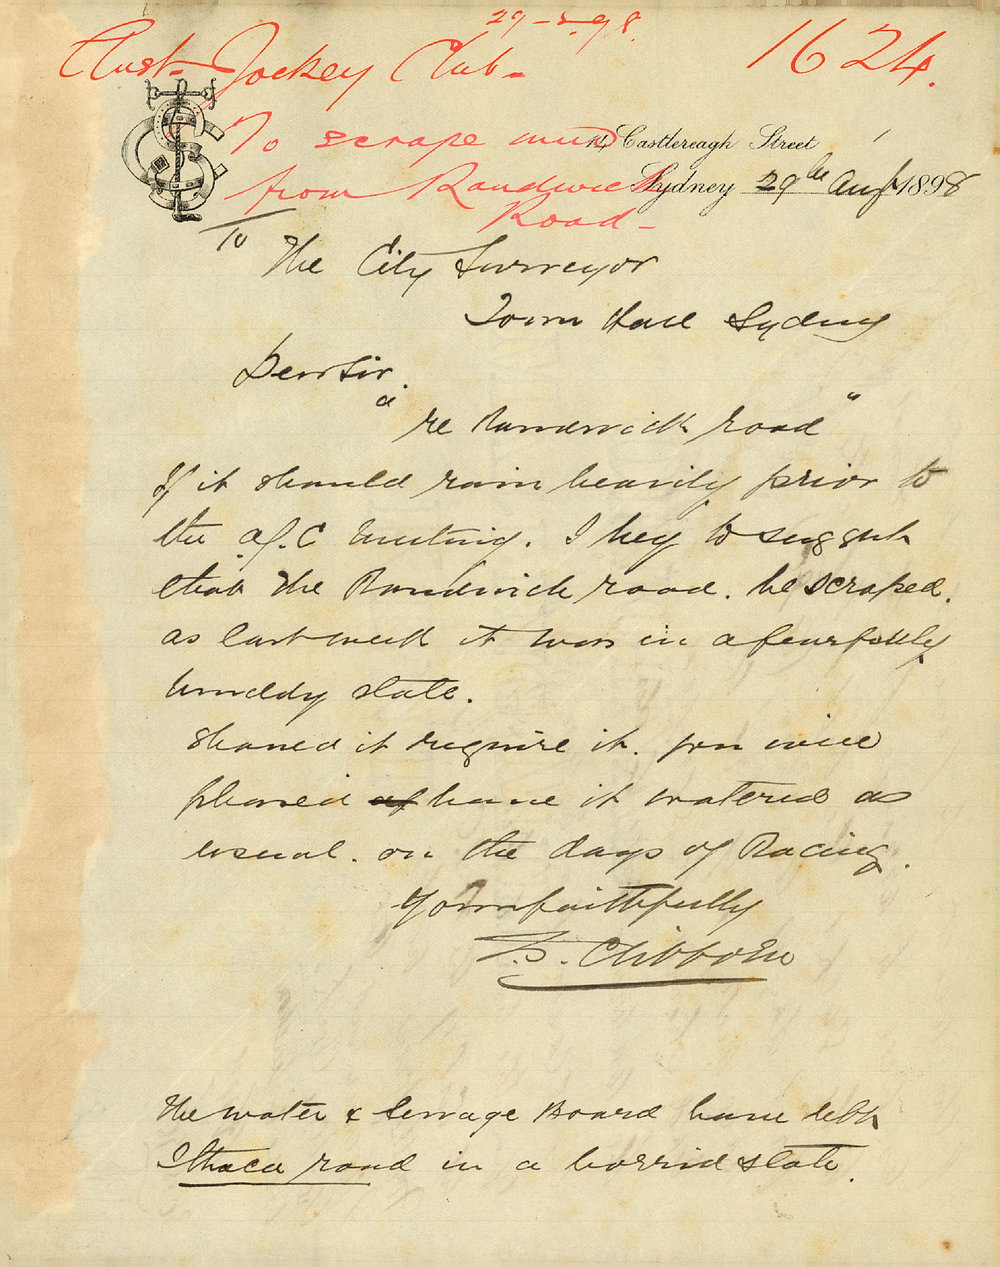 29-8-98.
Aust. Jockey Club - 1624.
To scrape mud
from Randwick
Road -
14, Castlereagh Street
Sydney 29th Augt 1898
To The City Surveyor
Town Hall Sydney
Dear Sir.
"re Randwick road"
If it should rain heavily prior to
the A.J.C meeting. I beg to suggest
that the Randwick road. be scraped.
as last week it was in a fearfully
muddy state.
should it require it. you will
please have it watered as
usual. on the days of Racing.
Yours faithfully
T.S. Clibborn
The water & Sewage Board have left
Ithaca road in a horrid state.